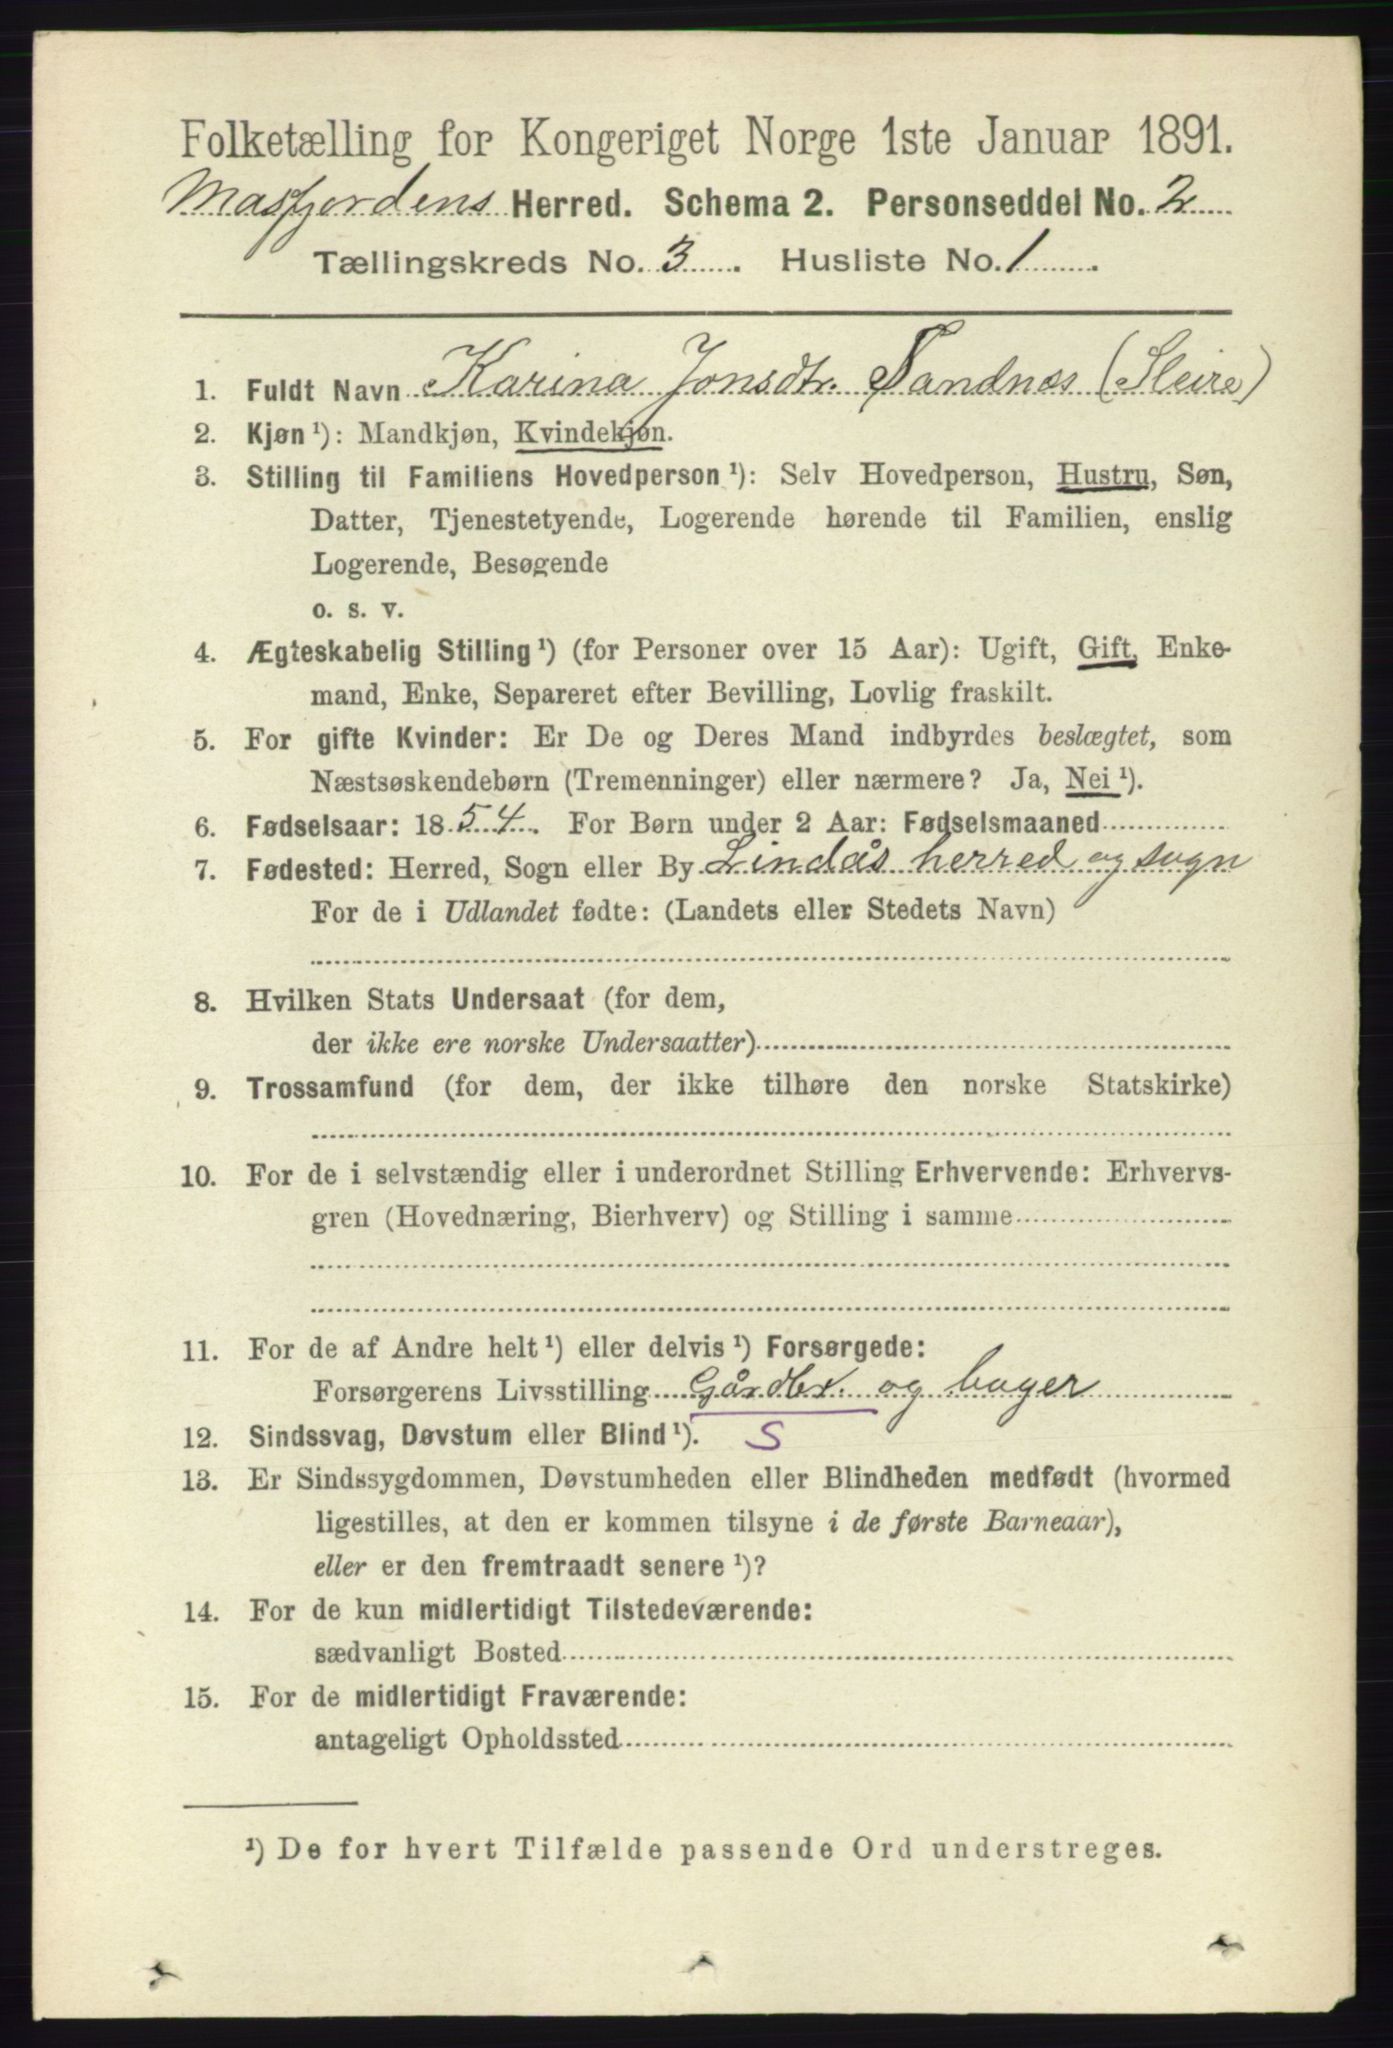 Folketælling for Kongeriget Norge 1ste Januar 1891.
Masfjordens Herred. Schema 2. Personseddel No. 2
Tællingskreds No. 3. Husliste No. 1.
1. Fuldt Navn Karina Jonsdtr. Sandnes (Sleire)
2. Kjøn ¹): Mandkjøn, Kvindekjøn.
3. Stilling til Familiens Hovedperson ¹): Selv Hovedperson, Hustru, Søn,
Datter, Tjenestetyende, Logerende hørende til Familien, enslig
Logerende, Besøgende
o. s. v.
4. Ægteskabelig Stilling ¹) (for Personer over 15 Aar): Ugift, Gift, Enke-
mand, Enke, Separeret efter Bevilling, Lovlig fraskilt.
5. For gifte Kvinder: Er De og Deres Mand indbyrdes beslægtet, som
Næstsøskendebørn (Tremenninger) eller nærmere? Ja, Nei ¹).
6. Fødselsaar: 1854. For Børn under 2 Aar: Fødselsmaaned
7. Fødested: Herred, Sogn eller By Lindås herred og sogn
For de i Udlandet fødte: (Landets eller Stedets Navn)
8. Hvilken Stats Undersaat (for dem,
der ikke ere norske Undersaatter)
9. Trossamfund (for dem, der ikke tilhøre den norske Statskirke)
10. For de i selvstændig eller i underordnet Stilling Erhvervende: Erhvervs-
gren (Hovednæring, Bierhverv) og Stilling i samme
11. For de af Andre helt ¹) eller delvis ¹) Forsørgede:
Forsørgerens Livsstilling Gårdbr. og bager
12. Sindssvag, Døvstum eller Blind ¹). S
13. Er Sindssygdommen, Døvstumheden eller Blindheden medfødt (hvormed
ligestilles, at den er kommen tilsyne i de første Barneaar),
eller er den fremtraadt senere ¹)?
14. For de kun midlertidigt Tilstedeværende:
sædvanligt Bosted
15. For de midlertidigt Fraværende:
antageligt Opholdssted
¹) De for hvert Tilfælde passende Ord understreges.